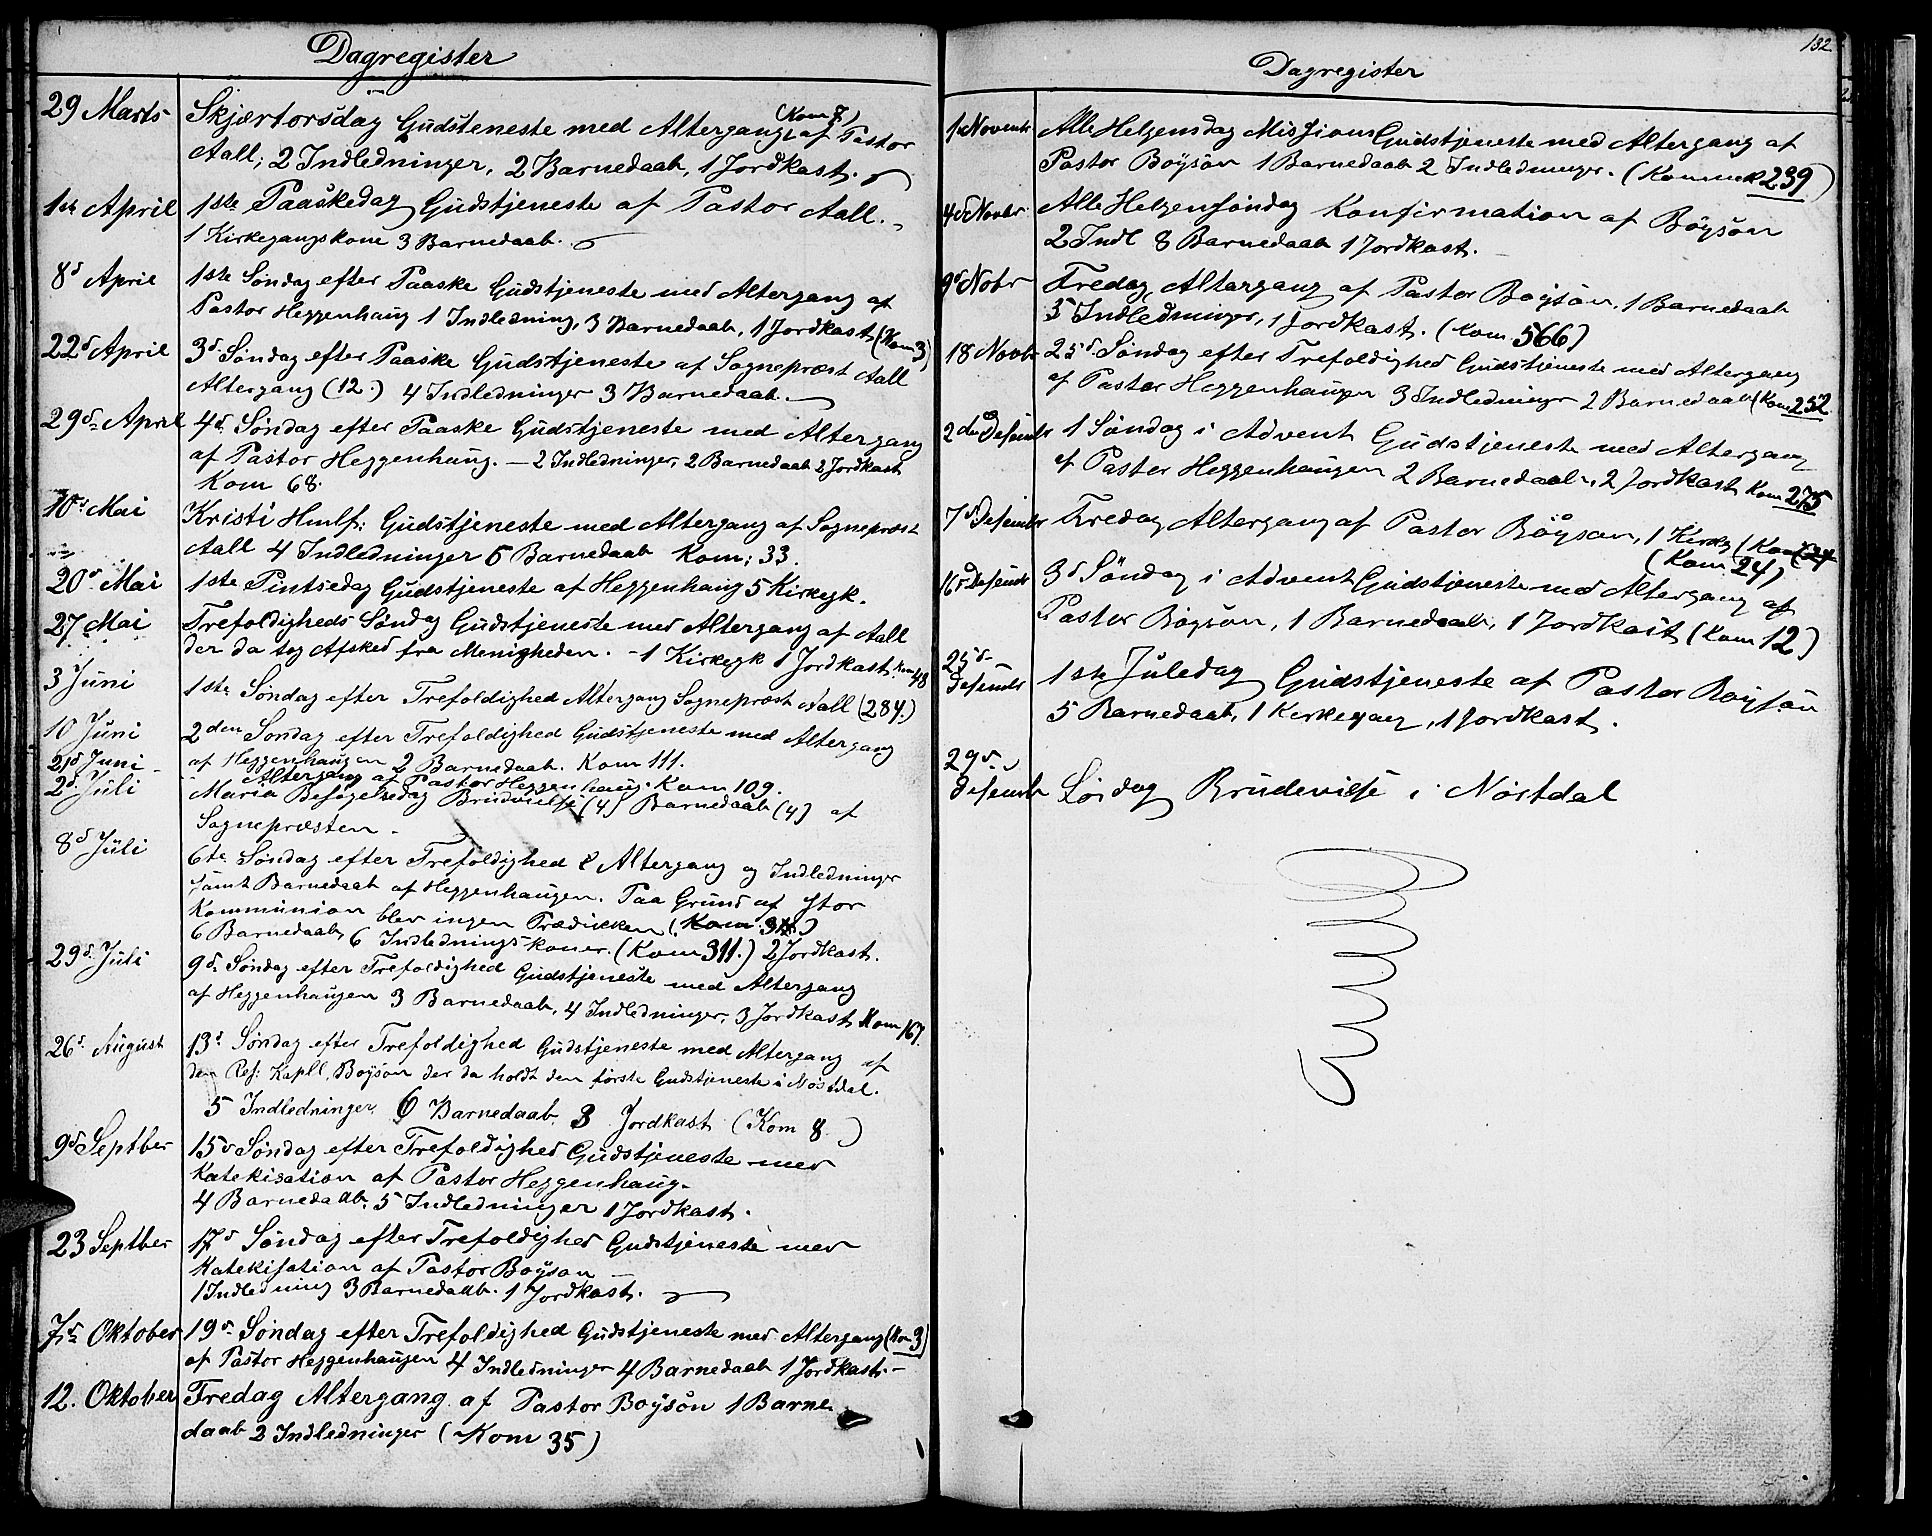 Dagregister
29 Marts Skjærtorsdag Gudsteneste med Altergang (Kom 7) af Pastor
Aall; 2 Indledninger, 2 Barnedaab, 1 Jordkast.
1ste April 1ste Paaskedag Gudstjeneste af Pastor Aall.
1 Kirkegangskone 3 Barnedaab.
8d April 1ste Søndag efter Paaske Gudstjeneste med Altergang af
Pastor Heggenhaug 1 Indledning, 3 Barnedaab, 1 Jordkast (Kom 3)
22d April 3d Søndag efter Paaske Gudstjeneste af Sogneprest Aall
Altergang (12.) 4 Indledninger 3 Barnedaab.
29d April 4d Søndag efter Paaske Gudstjeneste med Altergang
af Pastor Heggenhaug. – 2 Indledninger, 2 Barnedaab 2 Jordkast
Kom 68.
10d Mai Kristi Hmlf: Gudstjeneste med Altergang af Sognepræst
Aall 4 Indledninger 5 Barnedaab Kom: 33.
20d Mai 1ste Pintsedag Gudstjeneste af Heggenhaug 5 Kirkegk.
27 Mai Trefoldigheds Søndag Gudstjeneste med Altergang af Aall
der da tog Afsked fra Menigheden. – 1 Kirkegk 1 Jordkast. Kom 48
3 Juni 1ste Søndag efter Trefoldighed Altergang Sognepræst Aall (284.)
10 Juni 2den Søndag efter Trefoldighed Gudstjeneste med Altergang
af Heggenhaugen 2 Barnedaab. Kom 111.
21d Juni Altergang af Pastor Heggenhaug. Kom 109.
2d Juli Maria Besøgelsedag Brudvielse (4) Barnedaab (4) af
Sognepræsten.
8d Juli 6te Søndag efter Trefoldighed Altergang og Indledninger
samt Barnedaab af Heggenhaugen. Paa Grund af stor
Kommunion blev ingen Prædikken
6 Barnedaab, 6 Indledningskoner. (Kom 311.) 2 Jordkast.
29d Juli 9d Søndag efter Trefoldighed Gudstjeneste med Altergang
af Heggenhaugen 3 Barnedaab, 4 Indledninger, 3 Jordkast Kom 167.
26d August 13d Søndag efter Trefoldighed Gudstjeneste med Altergang af
den Res: Kapll. Boyson der da holdt den første Gudstjeneste i Nøstdal.
5 Indledninger 6 Barnedaab. 3 Jordkast (Kom 8.)
9d Septber 15d Søndag efter Trefoldighed Gudstjeneste med
Katekisation af Pastor Heggenhaug.
4 Barnedaab. 5 Indledninger 1 Jordkast.
23 Septber 17d Søndag efter Trefoldighed Gudstjeneste med
Katekisation af Pastor Boyson
1 Indledning 3 Barnedaab. 1 Jordkast.
7d Oktober 19d Søndag efter Trefoldighed Gudstjeneste med Altergang (Kom 3)
af Pastor Heggenhaugen 4 Indledninger 4 Barnedaab 1 Jordkast.–
12. Oktober Fredag Altergang af Pastor Boysøn 1 Barne
daab 2 Indledninger (Kom 35)
132
Dagregister
1 Novemb Alle Helgensdag Missions Gudstjeneste med Altergang af
Pastor Boysøn 1 Barnedaab 2 Indledninger. (Kommun 239)
4d Novbr Alle Helgensøndag Konfirmation af Böysøn
2 Indl 8 Barnedaab 1 Jordkast.
9d Nobr Fredag Altergang af Pastor Boysøn. 1 Barnedaab
5 Indledninger, 1 Jordkast. (Kom 566)
18 Novb 25d Søndag efter Trefoldighed Gudstjeneste med Altergang
af Pastor Heggenhaugen 3 Indledninger 2 Barnedaab (Kom 252
2den Desembr 1 Søndag i Advent Gudstjeneste med Altergang
af Pastor Heggenhaugen 2 Barnedaab, 2 Jordkast Kom 275
7d Desembr Fredag Altergang af Pastor Böyson, 1 Kirkeg (Kom 24
(Kom. 24)
16d Desembr 3d Søndag i Advent Gudstjeneste med Altergang af
Pastor Boyson, 1 Barnedaab, 1 Jordkast (Kom 12)
25d
Desembr 1ste Juledag Gudstjeneste af Pastor Boysøn
5 Barnedaab, 1 Kirkegang, 1 Jordkast.
29d
Desemb Lørdag Brudevielse i Nøstdal